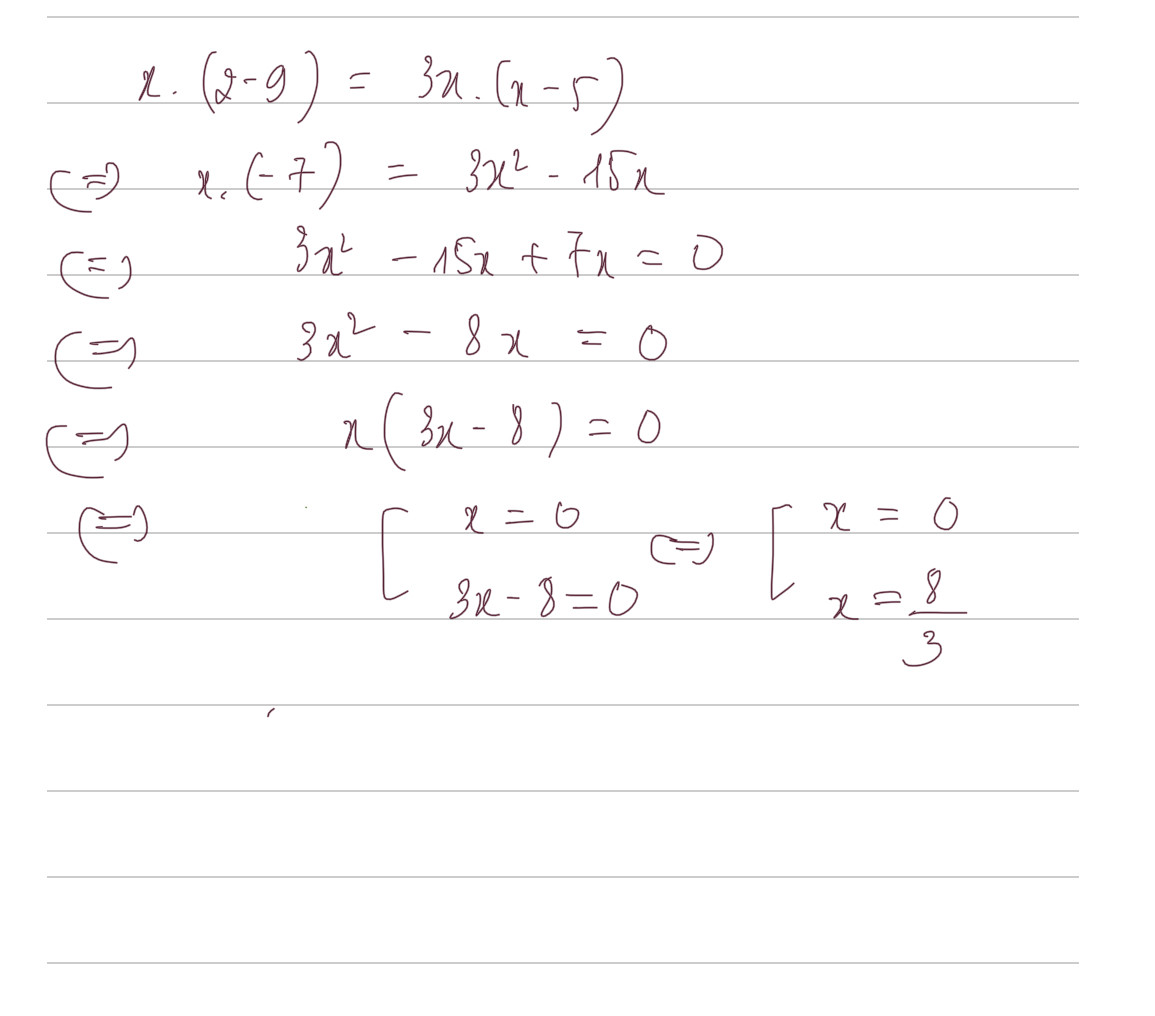 x. (2-9) = 3x. (x-5)
<=> x. (-7) = 3x² - 15x
<=> 3x² - 15x + 7x = 0
<=> 3x² - 8x = 0
<=> x(3x - 8) = 0
<=> [ x = 0 <=> [ x = 0
3x - 8 = 0 x = 8/3